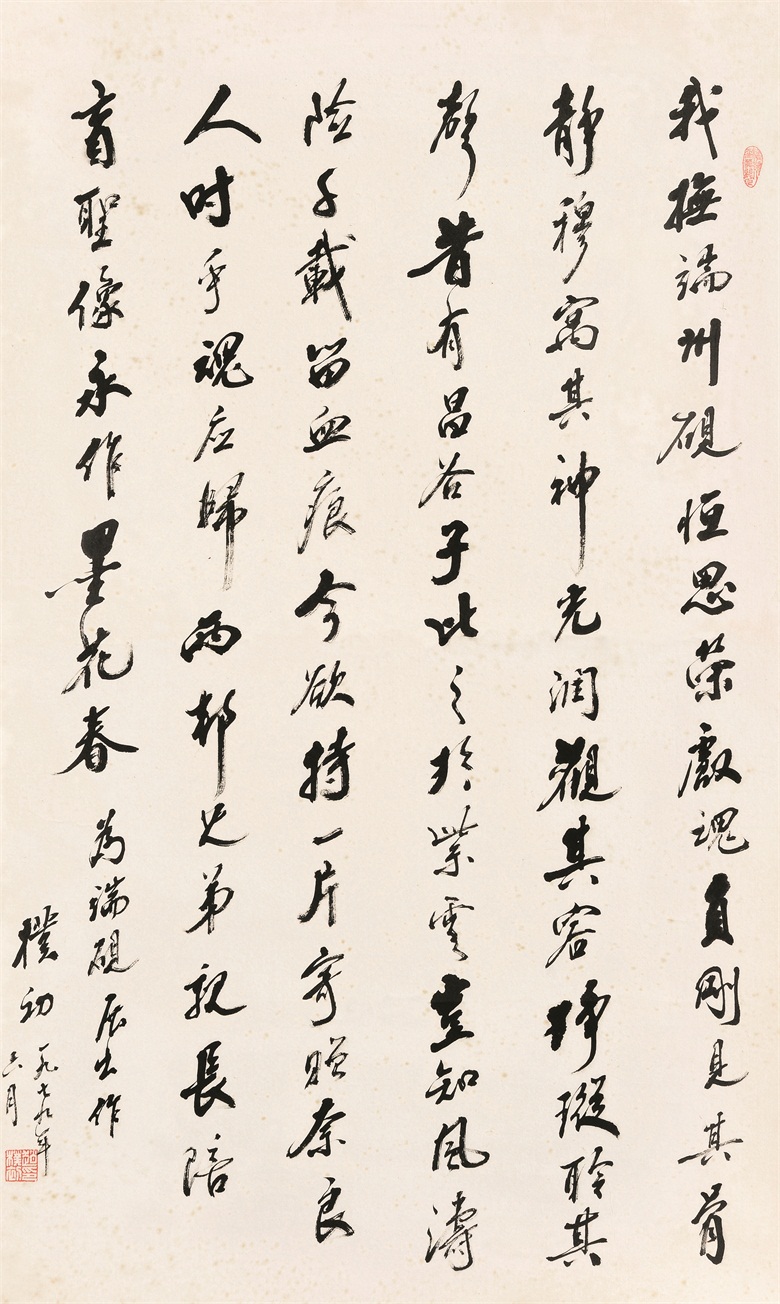 我撫端州硯恒思榮叡魂貞剛見其骨
静穆寓其神光潤觀其容琤瑽聆其
聲昔有昌谷子比之於紫雲豈知風濤
险千載留血痕今欲持一片寄贈奈良
人时乎魂应歸兩邦兄弟親長陪
盲聖像永作墨花春
為端硯展出作
樸初
一九七九年
六月